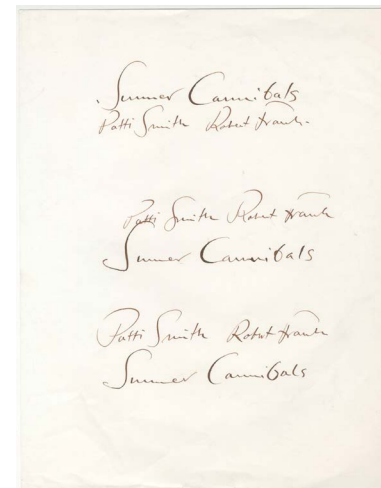 Summer Cannibals
Patti Smith Robert Frank
Patti Smith Robert Frank
Summer Cannibals
Patti Smith Robert Frank
Summer Cannibals